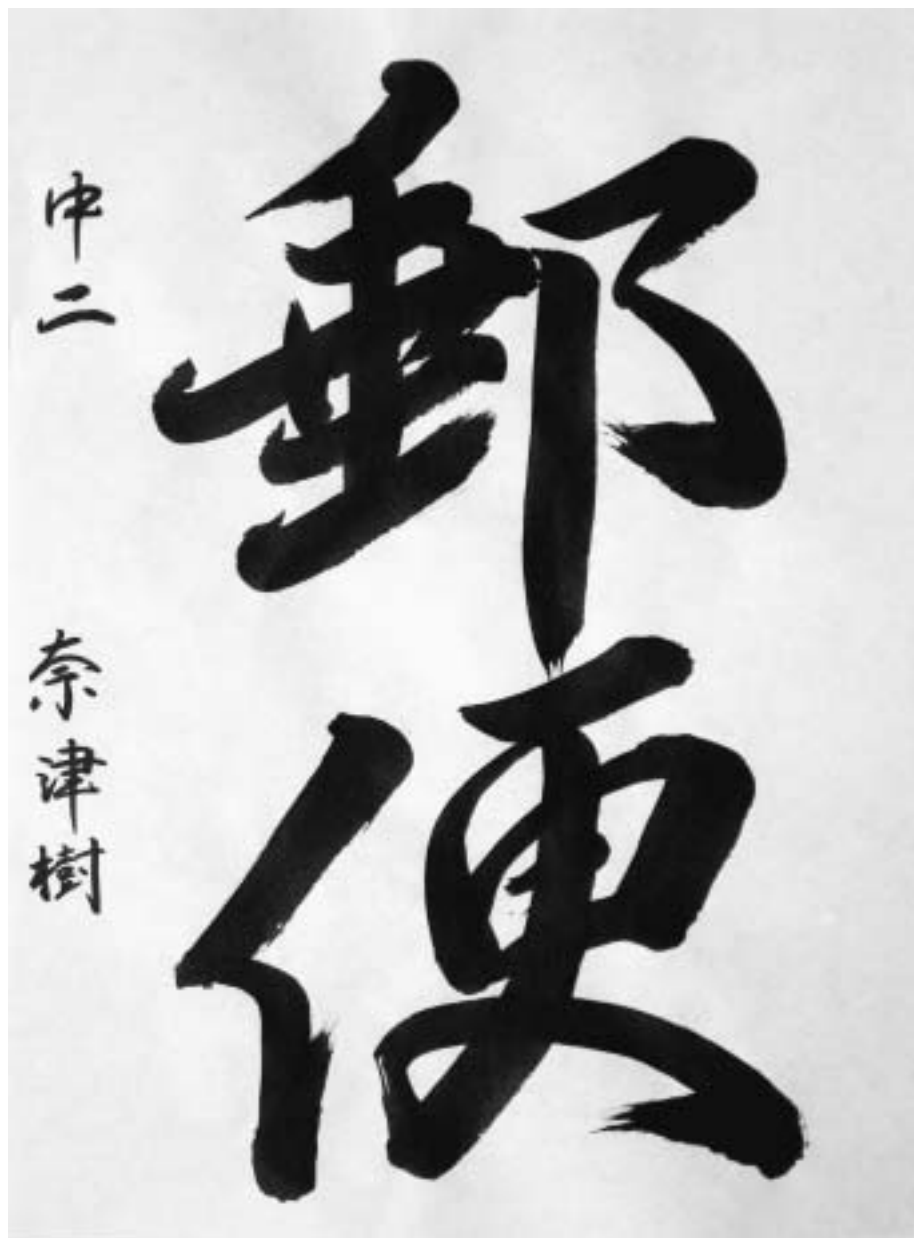 郵便
中二 奈津樹